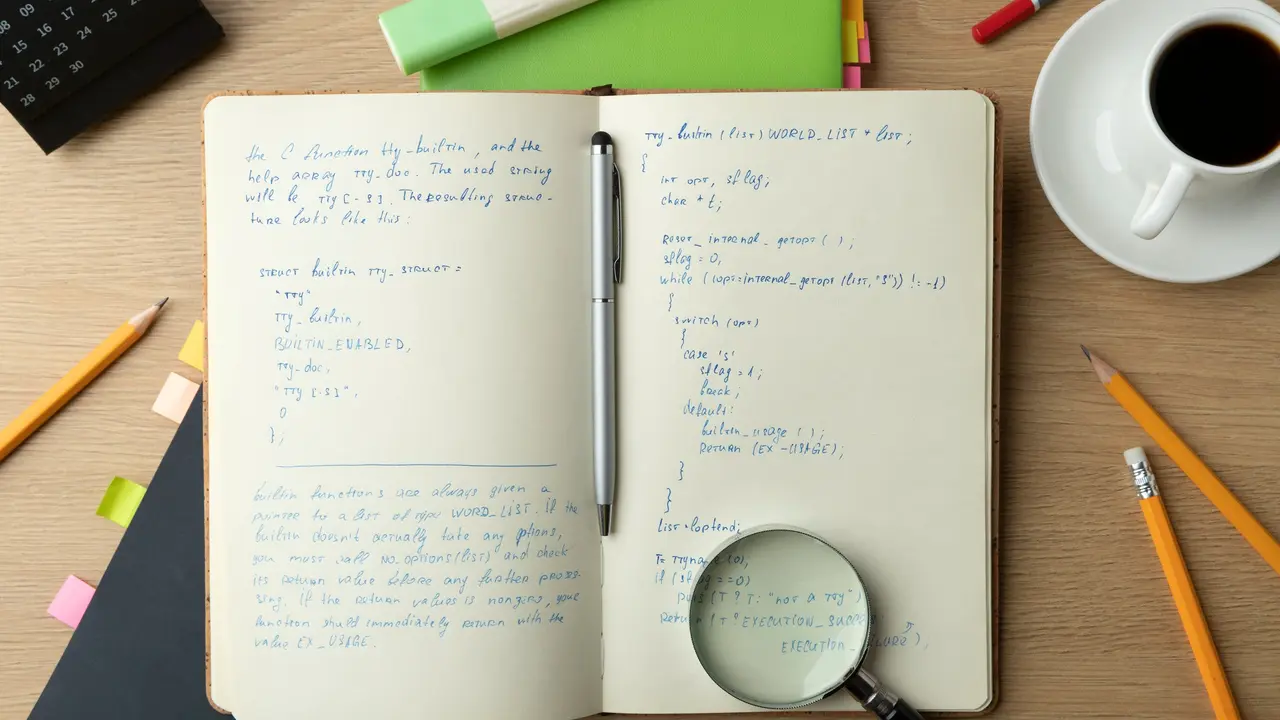 08 09
15 16 17
21 22 23 24 25
28 29 30
the C function tty-builtin, and the
help array TTY-doc. The used string
will be TTY [-S]. The resulting struc-
ture looks like this:
STRUCT builtin TTY_STRUCT =
"TTY"
TTY_builtin,
BUILTIN_ENABLED,
TTY-doc,
"TTY [-S]",
0
};
builtin functions are always given a
pointer to a list of type WORD_LIST. If the
builtin doesn't actually take any options,
you must call no_options(list) and check
its return value before any further proces-
sing. If the return values is nonzero, your
function should immediately return with the
value EX_USAGE.
TTY_builtin (list) WORLD_LIST * list;
{
INT OPT, sflag;
char * t;
RESET_internal_getopt ( );
sflag = 0,
while ((opt=internal_getopt (list,"S")) != -1)
{
switch (opt)
{
case 's'
sflag = 1;
break;
default:
builtin_usage ( );
RETURN (EX-USAGE);
}
}
List = loptend;
T= TTyname (0);
if (sflag ==0)
puts (T ? T: "not a TTY")
Return (T ? EXECUTION_SUCCESS
EXECUTION_